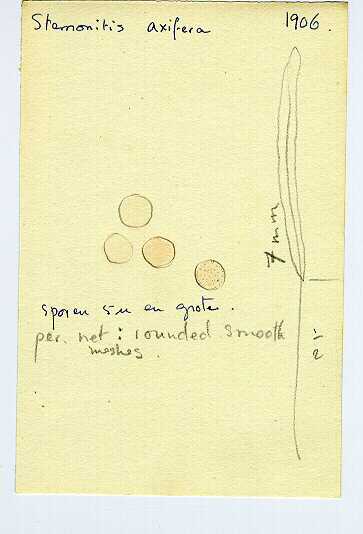 Stemonitis axifera 1906.
7 mm
sporen 5 u en grote.
per. net: rounded smooth
meshes.
1/2